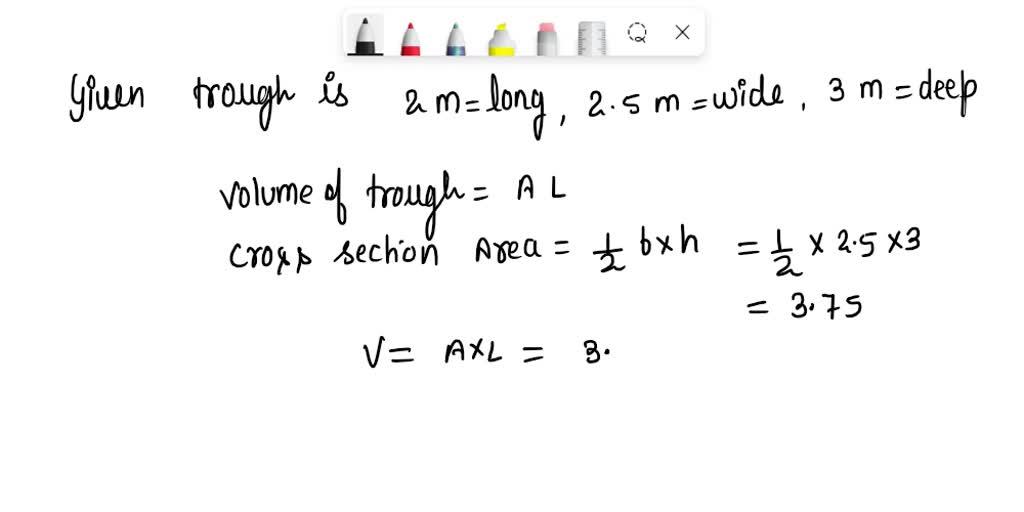 Given trough is 2 m = long, 2.5 m = wide, 3 m = deep
Volume of trough = A L
cross section Area = 1/2 b×h = 1/2 × 2.5 × 3
= 3.75
V = A×L = 3.